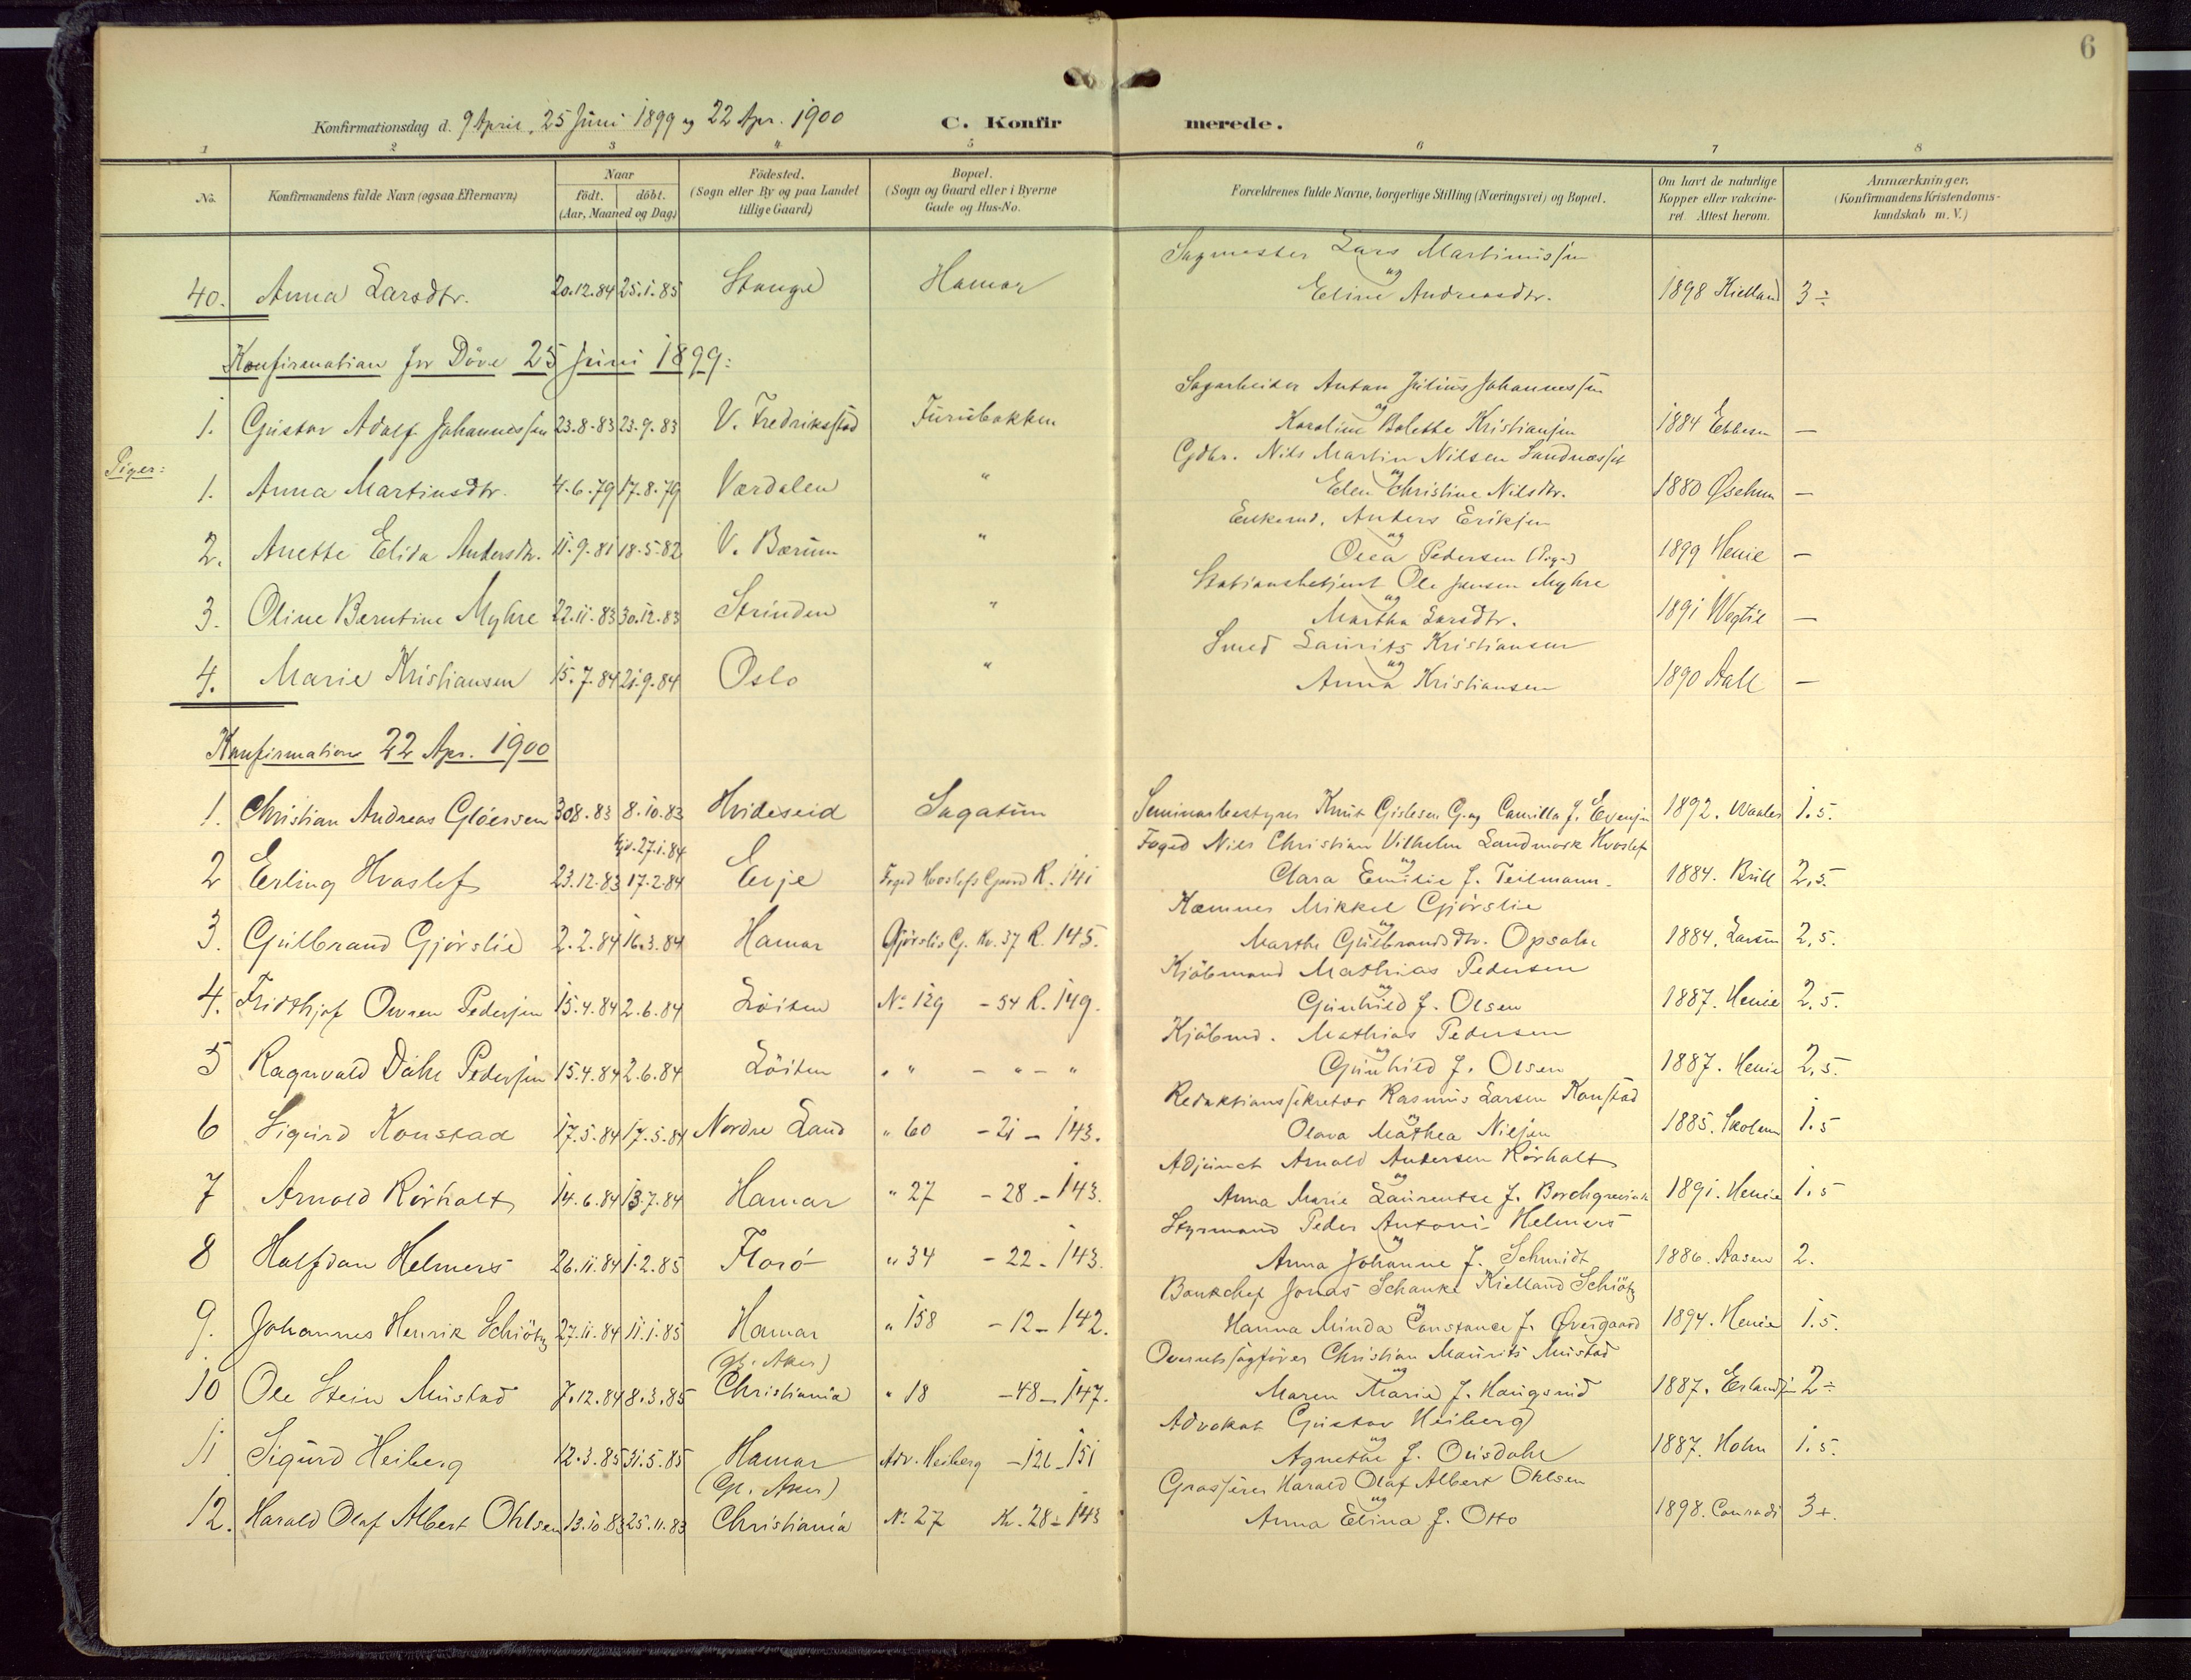 6
Konfirmationsdag d. 9 April, 25 Juni 1899 og 22 Apr. 1900 C. Konfirmerede.
1 2 3 4 5 6 7 8
No. Konfirmandens fulde Navn (ogsaa Efternavn) Naar født. døbt. (Aar, Maaned og Dag.) Fødested. (Sogn eller By og paa Landet tillige Gaard) Bopæl. (Sogn og Gaard eller i Byerne Gade og Hus-No. Forældrenes fulde Navne, borgerlige Stilling (Næringsvei) og Bopæl. Om havt de naturlige Kopper eller vakcineret Attest herom. Anmærkninger. (Konfirmandens Kristendomskundskab m. V.)
Sagmester Lars Martinussen
40. Anna Larsdtr. 20.12.84 25.1.85 Stange Hamar og Eline Andreasdtr. 1898 Kielland 3÷
Konfirmation for Døve 25 Juni 1899:
Sagarbeider Anton Julius Johannessen
1. Gustav Adolf Johannessen 23.8.83 23.9.83 V. Fredrikstad Furubakken og Karoline Bolette Kristiansen 1884 Ebbesen —
Piger:
Gdbr. Nils Martin Nilsen
1. Anna Martinsdtr. 4.6.79 17.8.79 Værdalen " og Elen Christine Nilsdtr. 1880 —
Enkemd. Anders Eriksen
2. Anette Elida Andersdtr. 11.9.81 18.5.82 V. Bærum " og Olea Pedersen 1899 Henie —
Stationsbetjent Ole Jensen Myhre
3. Oline Berntine Myhre 22.11.83 30.12.83 Strinden " og Martha Larsdtr. 1891 —
Smed Laurits Kristiansen
4. Marie Kristiansen 15.7.84 21.9.84 Oslo " og Anna Kristiansen 1890 Aall —
Konfirmation 22 Apr. 1900
1. Christian Andreas Gløersen 30.8.83 8.10.83 Hvideseid Sagatun Seminarbestyrer Knut Gislesen G. og Camilla f. Evensen 1892. Waaler 1.5.
hjd. 27.1.84 Foged Nils Christian Vilhelm Landmark Hvoslef
2 Erling Hvoslef 23.12.83 17.2.84 Evje Foged Hvoslefs Gaard R. 141 og Clara Emilie f. Teilmann. 1884. Brill 2,5.
Kæmner Mikkel Gjörslie
3. Gulbrand Gjörslie 2.2.84 16.3.84 Hamar Gjörslis G. Kv. 37 R. 145. og Marthe Gulbrandsdtr. Opsahl 1884. Larsen 2,5.
Kjöbmand Mathias Pedersen
4. Fridthjof Owren Pedersen 15.4.84 2.6.84 Löiten No 129 - 54 R. 149. og Gunhild f. Olsen 1887. Henie 2,5.
Kjöbmd. Mathias Pedersen
5 Ragnvald Dahl Pedersen 15.4.84 2.6.84 Löiten " " - " - " og Gunhild f. Olsen 1887. Henie 2,5.
Redaktionssekretær Rasmus Larsen Konstad
6 Sigurd Konstad 17.5.84 17.5.84 Nordre Land " 60 - 21 - 143. og Olava Mathea Nilsen 1885. 1.5
Adjunct Arnold Andersen Rörholt
7 Arnold Rörholt 14.6.84 13.7.84 Hamar " 27 - 28 - 143. og Anna Marie Laurentse f. Borchgrevink 1891. Henie 1.5
Styrmand Peder Antoni Helmers
8 Halfdan Helmers 26.11.84 1.2.85 Florö " 34 - 22 - 143. og Anna Johanne f. Schmidt 1886. Aasen 2.
Bankchef Jonas Schanke Kielland Schiötz
9. Johannes Henrik Schiötz 27.11.84 11.1.85 Hamar " 158 - 12 - 142. og Hanna Minda Constance f. Øvergaard 1894. Henie 1.5.
(gl. Aker) Overretssagförer Christian Maurits Mustad
10 Ole Stein Mustad 7.12.84 8.3.85 Christiania " 18 - 48 - 147. og Maren Marie f. Haugsrud 1887. Erlandsen 2÷
Advokat Gustav Heiberg
11 Sigurd Heiberg 12.3.85 31.5.85 Hamar Adv. Heiberg - 126 - 151 og Agnethe f. Onsdahl 1887. Holm 1.5.
(Gl. Aker) Grosserer Harald Olaf Albert Ohlsen
12. Harald Olaf Albert Ohlsen 13.10.83 25.11.83 Christiania No 27 Kv. 28 - 143 og Anna Elina f. Otto 1898. Conradi 3+.